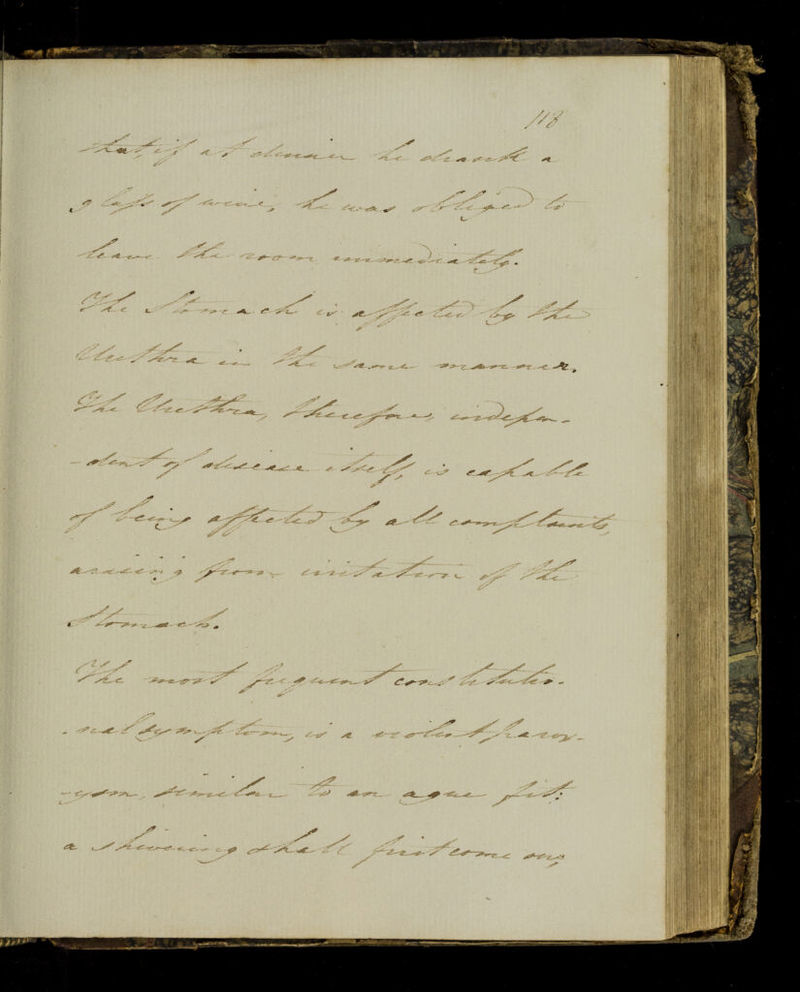 118
that, if at dinner he drank a
glass of wine, he was obliged to
leave the room immediately.
The Stomach is affected by the
Urethra in the same manner.
The Urethra, therefore, indepen-
-dent of disease itself, is capable
of being affected by all complaints,
arising from irritation of the
Stomach.
The most frequent constitutio-
-nal symptom, is a violent parox-
-ysm, similar to an ague fit:
a shivering shall first come on,